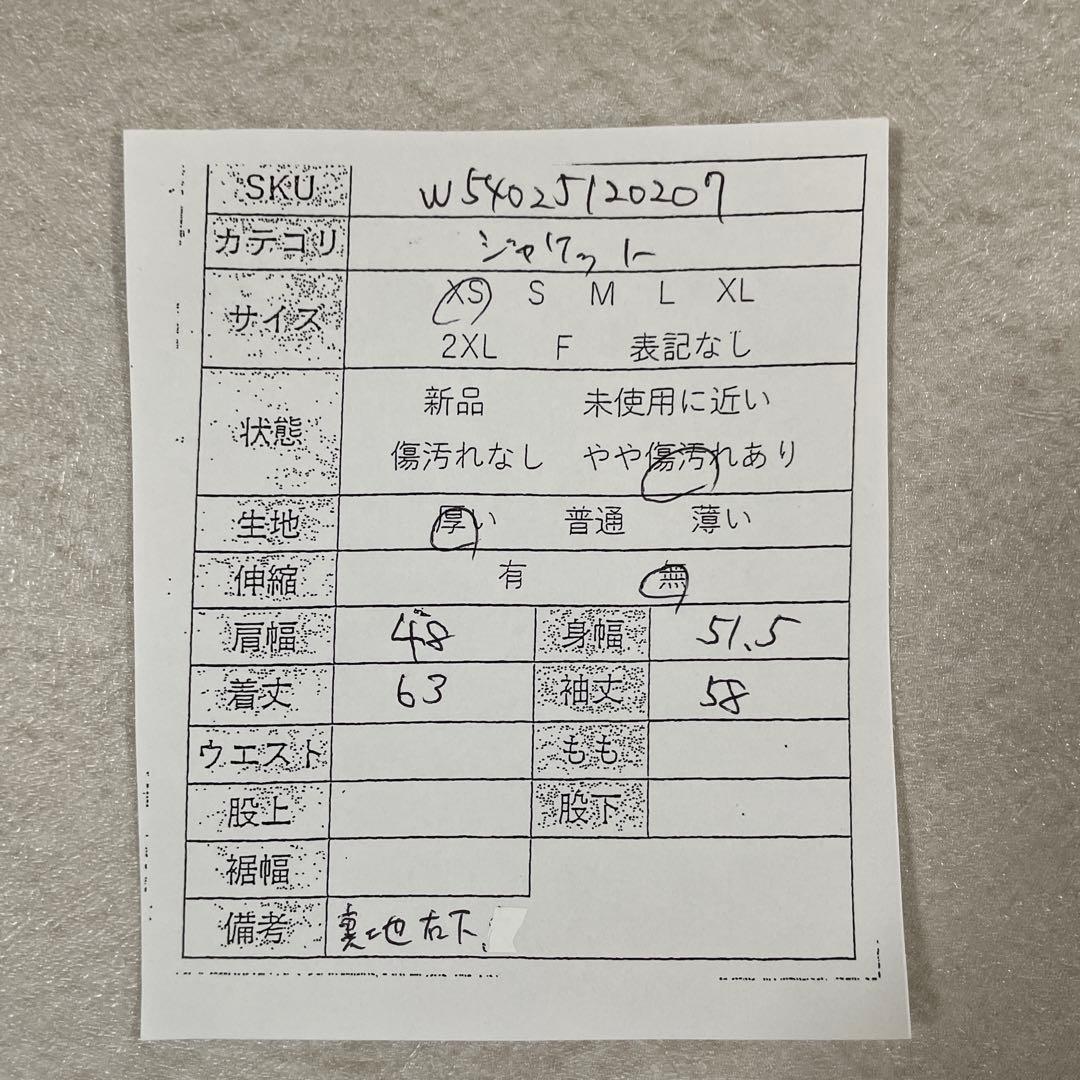 SKU W54025120207
カテゴリ ジャケット
サイズ XS S M L XL
2XL F 表記なし
状態 新品 未使用に近い
傷汚れなし やや傷汚れあり
生地 厚い 普通 薄い
伸縮 有 無
肩幅 48 身幅 51.5
着丈 63 袖丈 58
ウエスト もも
股上 股下
裾幅
備考 裏地右下